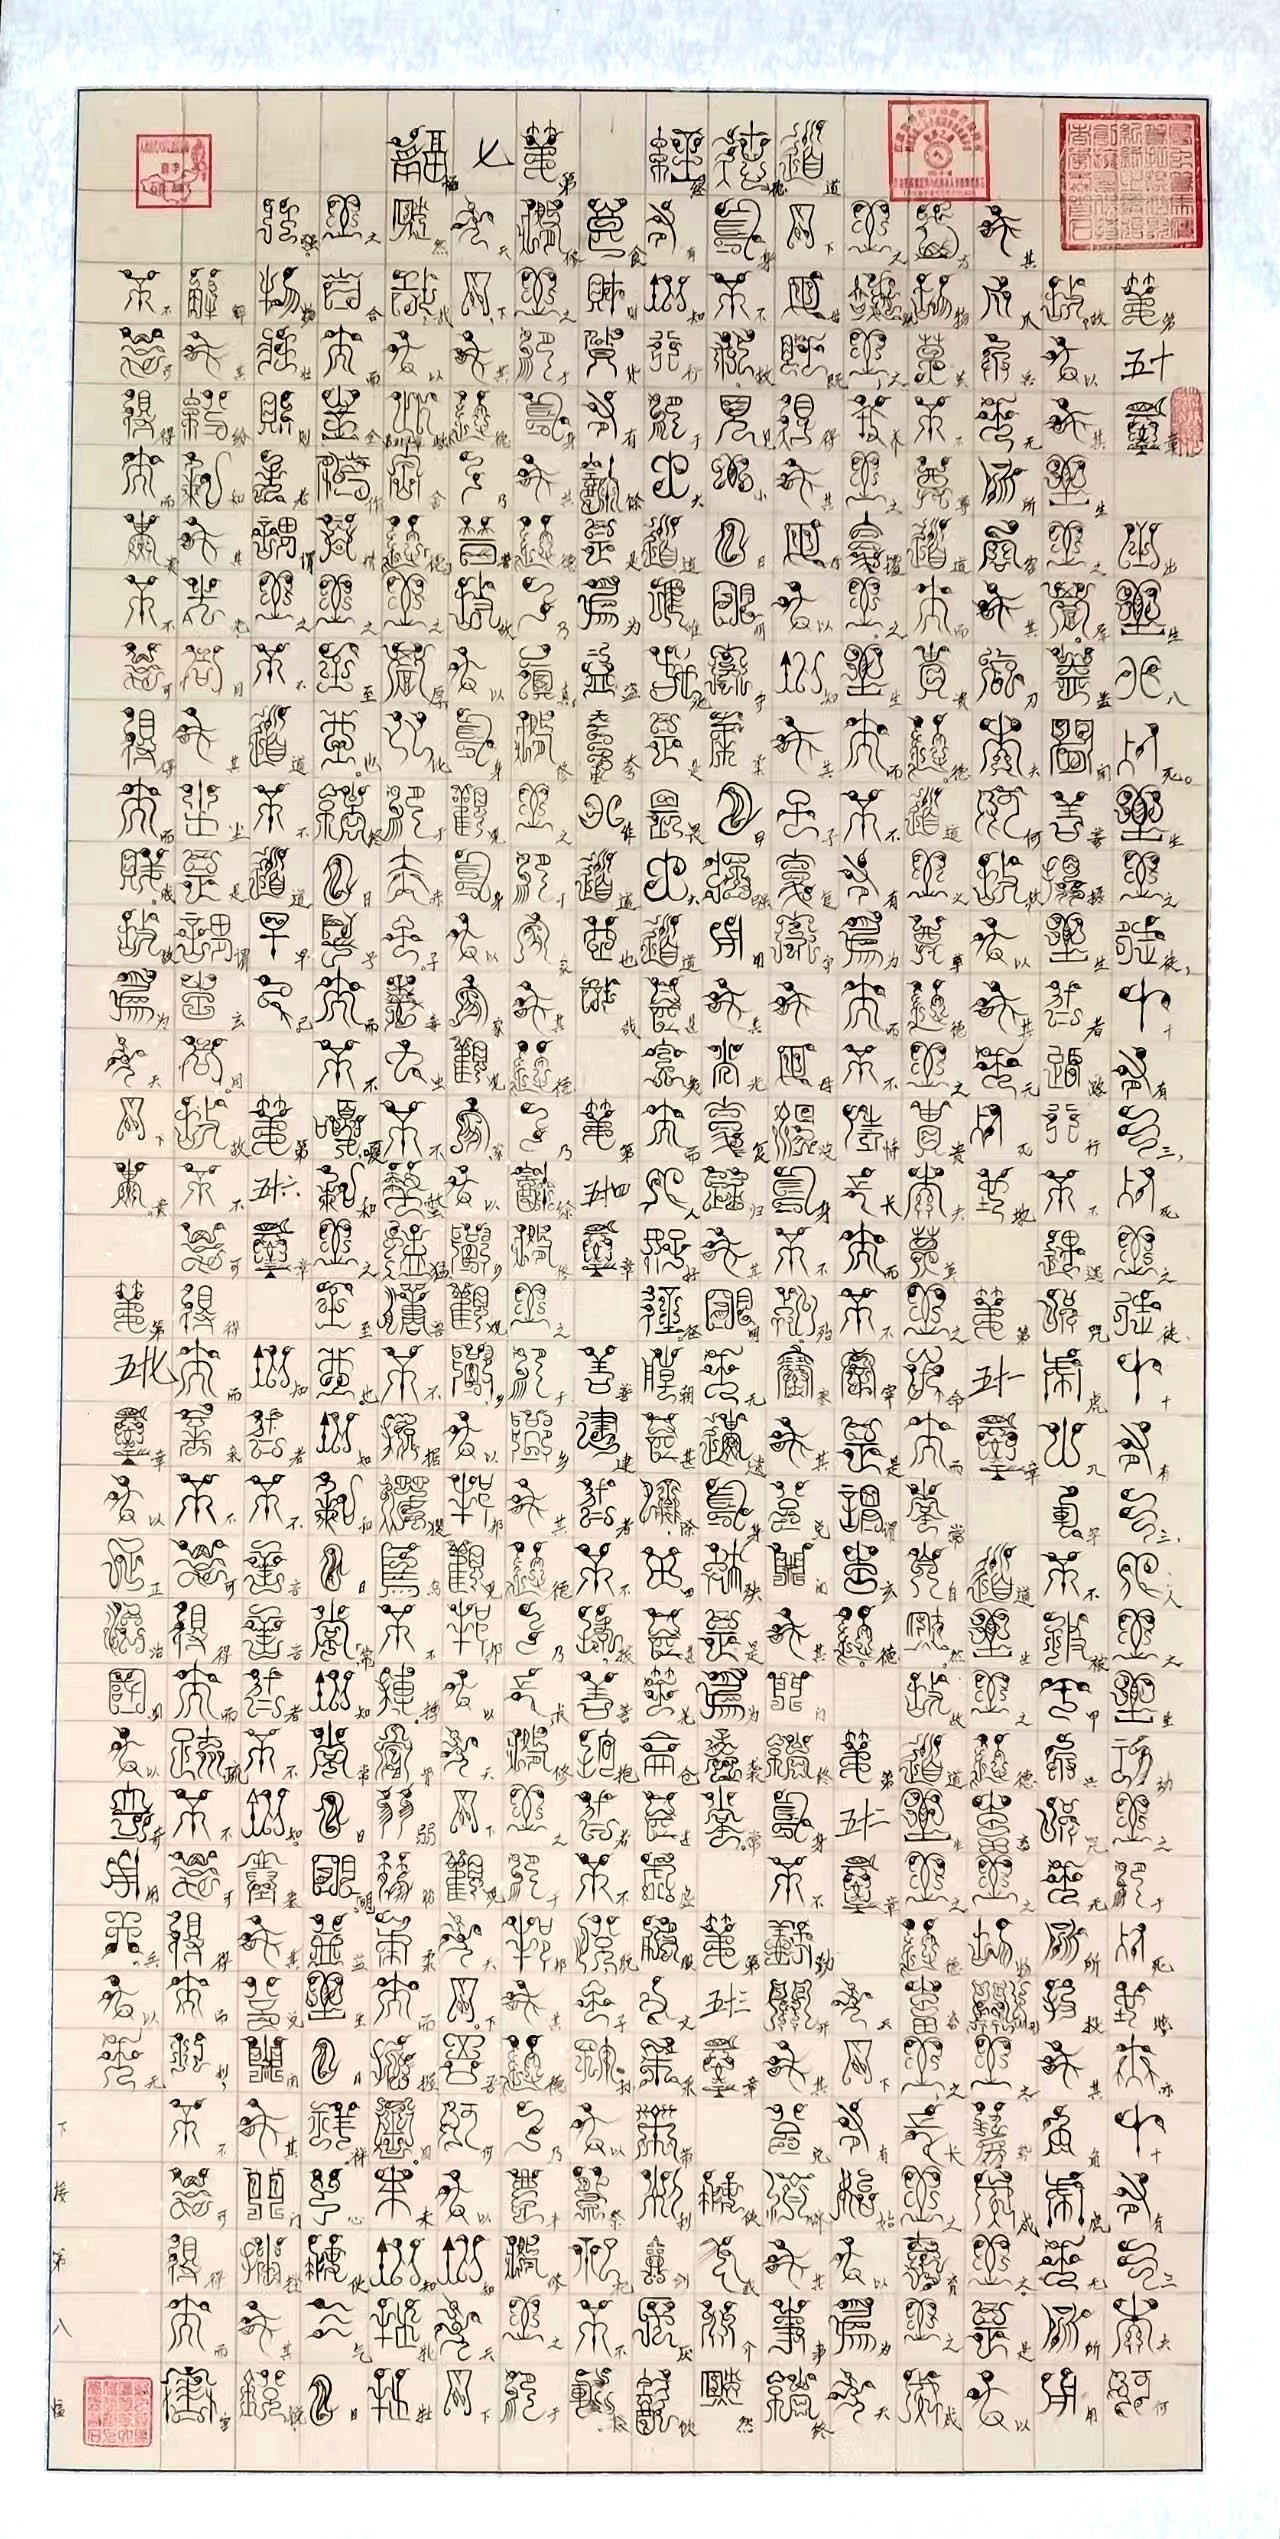 道德经 第七幅
第五十章 出生入死生之徒十有三死之徒十有三人之生动之于死地亦十有三夫何
故以其生之厚盖闻善摄生者陆行不遇兕虎入军不被甲兵兕无所投其角虎无所用
其爪兵无所容其刃夫何故以其无死地 第五十一章 道生之德畜之物形之势成之是以
万物莫不尊道而贵德道之尊德之贵夫莫之命而常自然故道生之德畜之长之育之成
之熟之养之覆之生而不有为而不恃长而不宰是谓玄德 第五十二章 天下有始以为天
下母既得其母以知其子复守其母没身不殆塞其兑闭其门终身不勤开其兑济其事终
身不救见小曰明守柔曰强用其光复归其明无遗身殃是为袭常 第五十三章 使我介然
有知行于大道唯施是畏大道甚夷而人好径朝甚除田甚芜仓甚虚服文采带利剑厌饮
食财货有余是为盗夸非道也哉 第五十四章 善建者不拔善抱者不脱子孙以祭祀不辍
修之于身其德乃真修之于家其德乃余修之于乡其德乃长修之于邦其德乃丰修之于
天下其德乃普故以身观身以家观家以乡观乡以邦观邦以天下观天下吾何以知天下
然哉以此含德之厚比于赤子毒虫不螫猛兽不据攫鸟不搏骨弱筋柔而握固未知牝牡
之合而全作精之至也终日号而不嗄和之至也知和曰常知常曰明益生曰祥心使气曰
强物壮则老谓之不道不道早已 第五十六章 知者不言言者不知塞其兑闭其门挫其锐
解其纷和其光同其尘是谓玄同故不可得而亲不可得而疏不可得而利不可得而害
不可得而贵不可得而贱故为天下贵 第五十七章 以正治国以奇用兵以无
下接第八幅